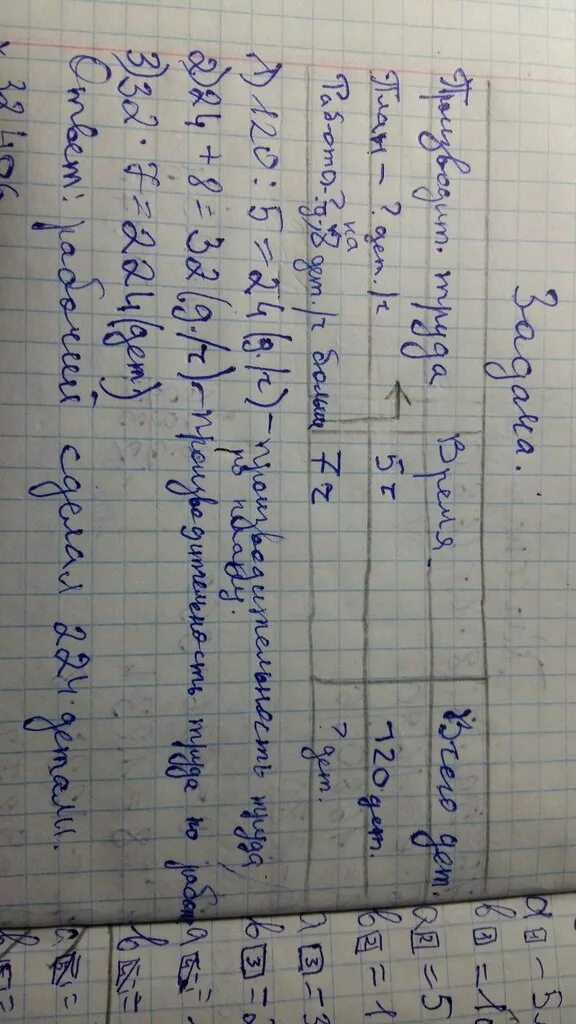 Задача.
Производит. труда Время Всего дет.
План - ? дет./ч 5ч 120 дет.
на 8 дет./ч больше 7ч ? дет.
1) 120 : 5 = 24 (д./ч) - производительность труда,
по плану.
2) 24 + 8 = 32 (д./ч) - производительность труда по
3) 32 · 7 = 224 (дет.)
Ответ: рабочий сделал 224 детали.
32406